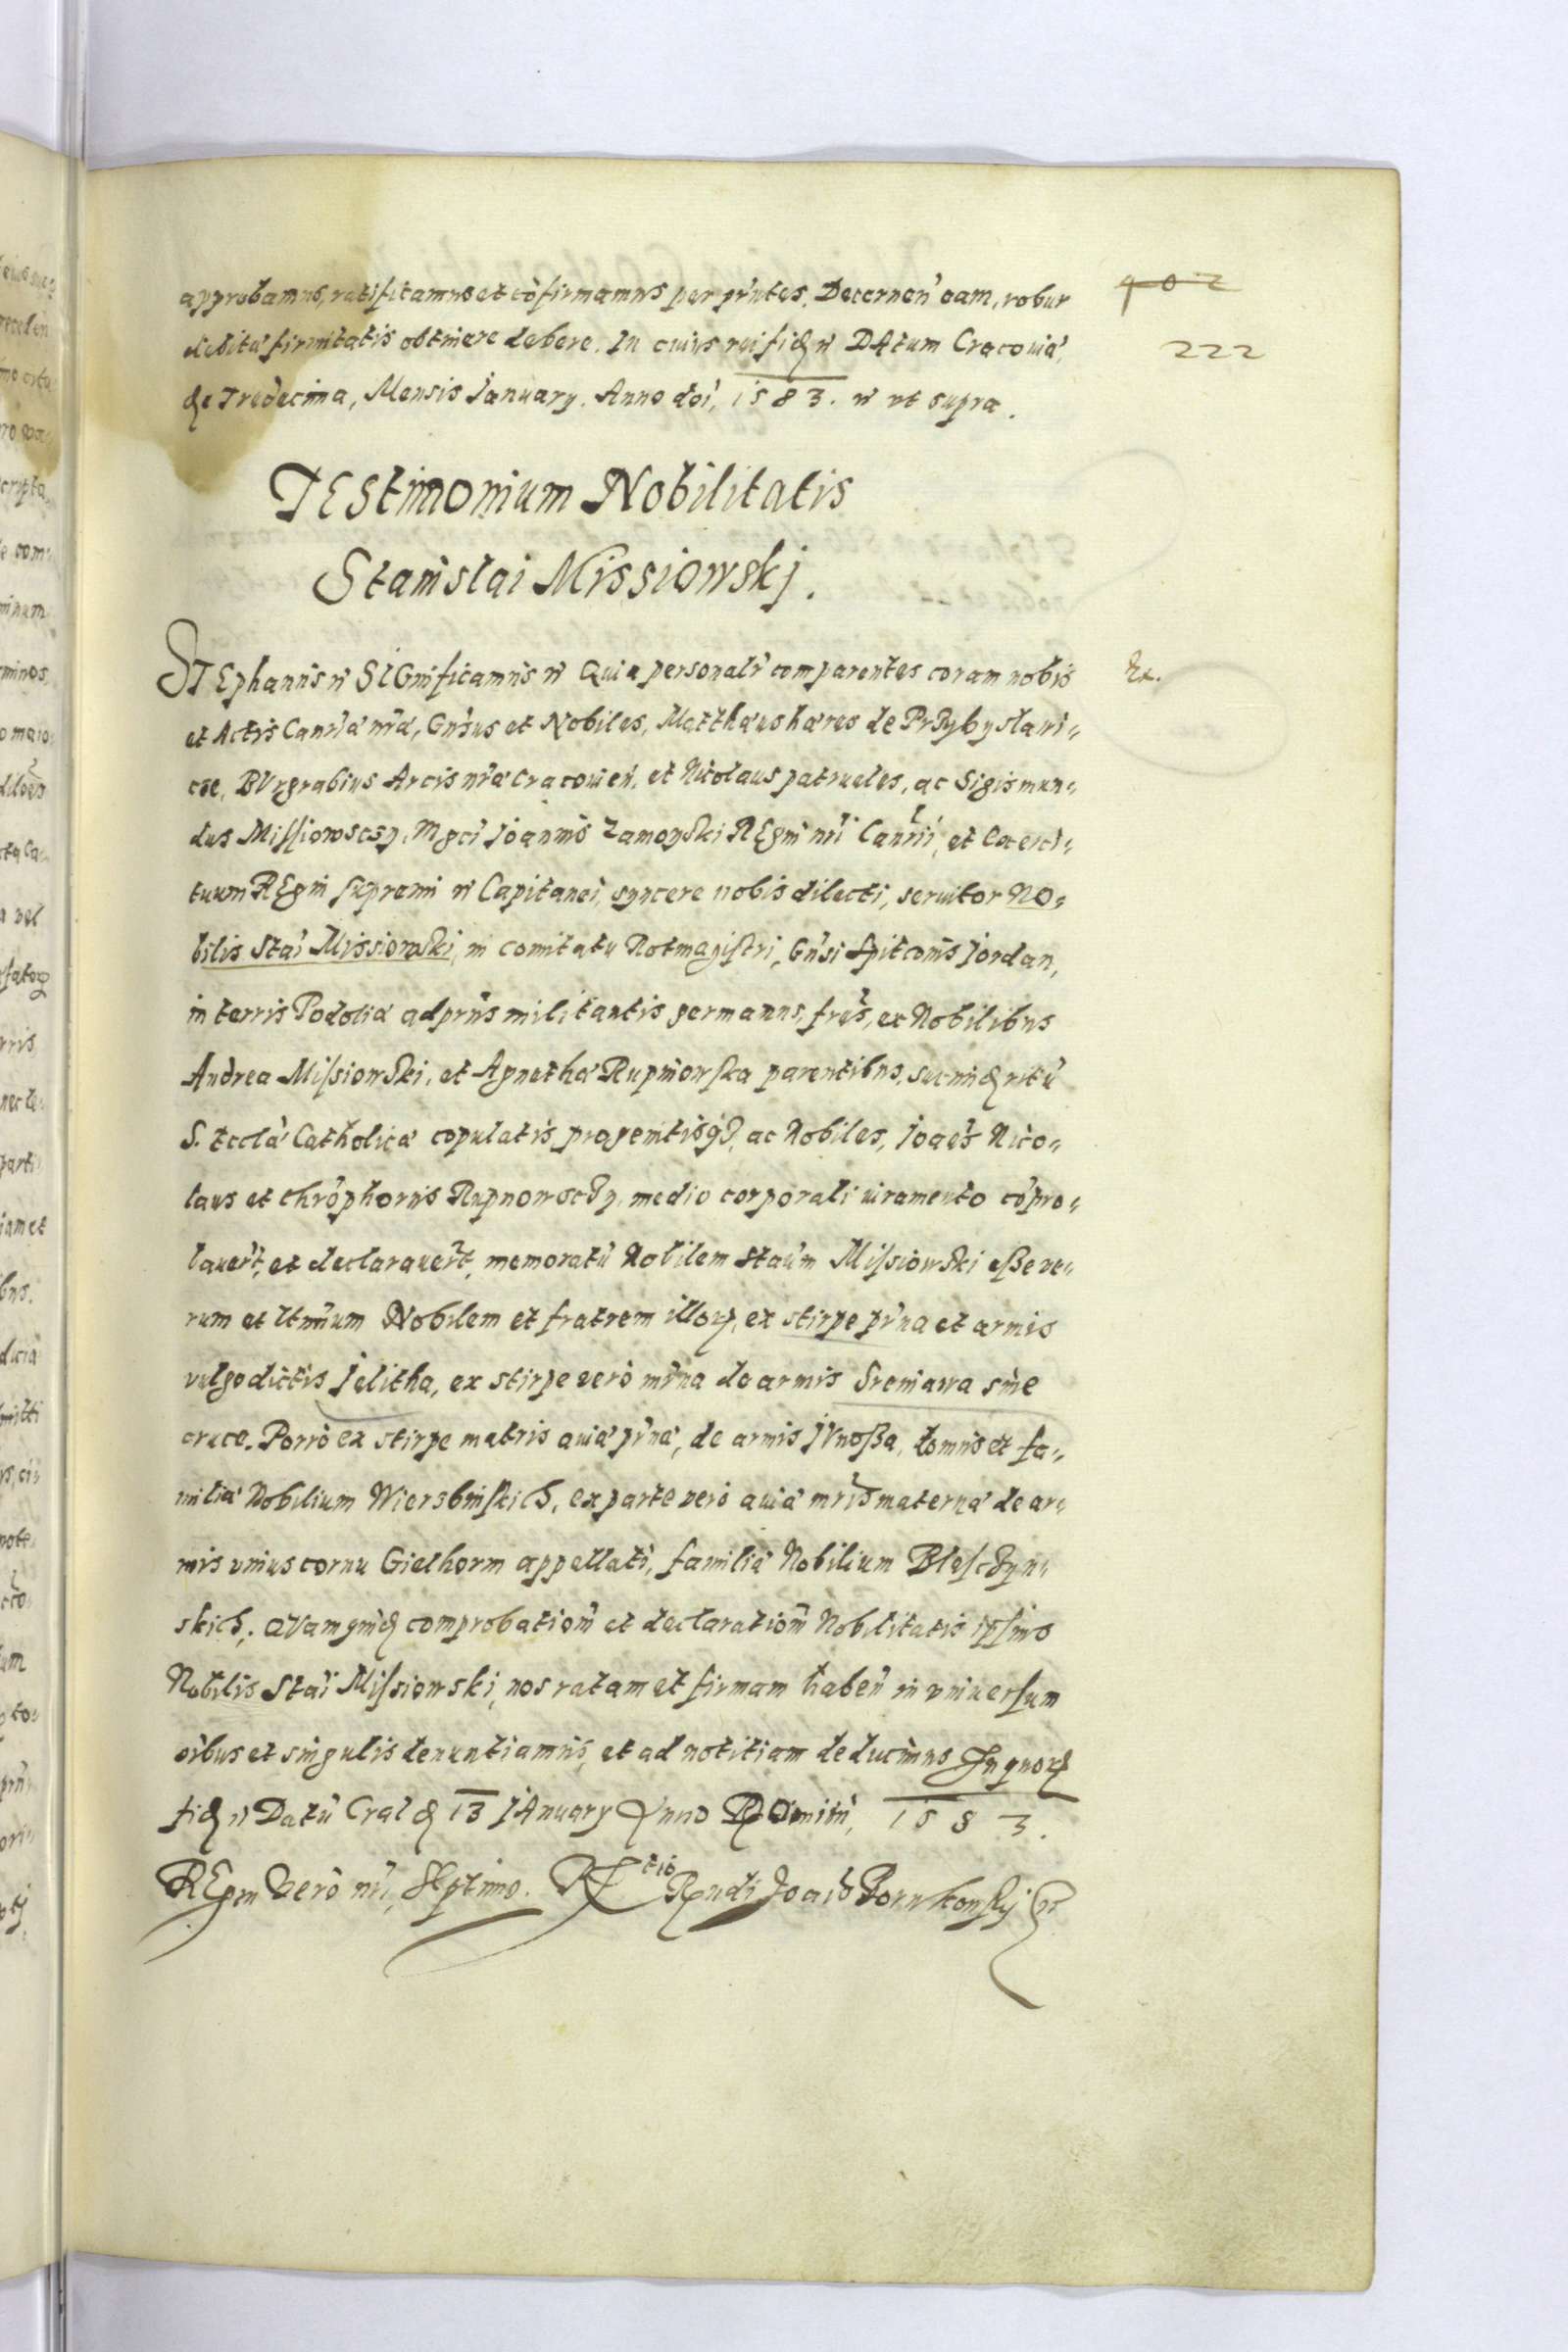 approbamus, ratificamus et cōfirmamus per prn̄tes. Decernen̄ eam, robur
debitæ firmitatis obtinere debere. In cuius rei fidē n̄ DAtum Cracouiæ,
die Tredecima, Mensis January. Anno doī, 1583. n̄ ut supra.
402
222
TEStimonium Nobilitatis
Stanislai Missiowskj.
STEphanus n̄ SIGnificamus n̄ Quia personalr̄ comparentes coram nobis
Ex.
et Actis Canr̄iæ nr̄æ, Gn̄sus et Nobiles, Matthæus hæres de Przybyslawi=
cze, BUrgrabius Arcis nr̄æ Cracouien̄. et Nicolaus patrueles, ac Sigismun=
dus Missiowsczy, Mgcī Joannis Zamoyski REgni nrī Canrīi, et Exerci=
tuum REgni supremi n̄ Capitanei, syncere nobis dilecti, seruitor NO=
bilis Staī Missiowski, in comitatu Rotmagistri, Gn̄si Spitconis Jordan,
in terris Podoliæ ad prn̄s militantis germanus, frēs, ex Nobilibus
Andrea Missiowski, et Agnetha Rupniowska parentibus,
S. Ecclæ Catholicæ copulatis progenitisqз, ac Nobiles, Joaēs Nico=
laus et Chrōphorus Rupnowsczy, medio corporali iuramento cōpro=
bauer̄t, et declarauer̄t, memoratū Nobilem Staūm Missiowski esse ve=
rum et ltm̄um Nobilem et fratrem illorꝫ, ex stirpe pr̄na et armis
vulgo dictis Jelitha, ex stirpe vero mr̄na de armis Sreniawa sine
cruce. Porrò ex stirpe matris auiæ pr̄næ, de armis JUnossa, domus et fa=
miliæ Nobilium Wiersbinskich, ex parte vero auiæ mr̄is maternæ de ar=
mis unius cornu Gielhorm appellati, familiæ Nobilium Blesczyn=
skich. QUamquidē comprobationē et declarationē Nobilitatis ipsius
Nobilis Staī Missiowski, nos ratam et firmam haben̄ in vniuersum
oībus et singulis denuntiamus, et ad notitiam deducimus In quorꝫ
fidē n̄ Datū Crac̄ diē 13 JAnuary Anno DOmini, 1583.
REgni vero nrī, SEptimo. Rtio Rndi Joaīs Borukowskj